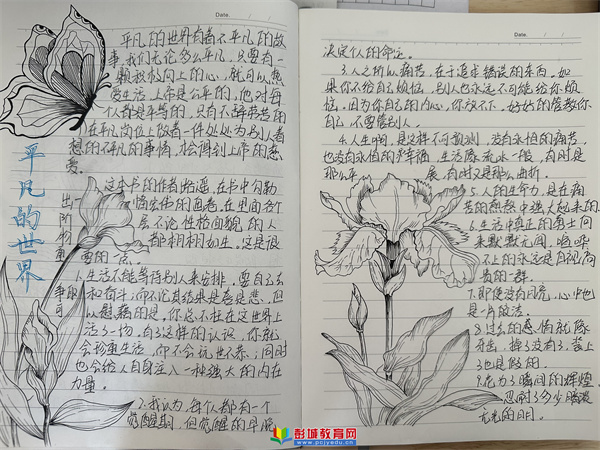 Date.
平凡的世界
平凡的世界有着不平凡的故
事,我们无论多么平凡,只要有一
颗积极向上的心,就可以热
爱生活,上帝是公平的,他对每
个人都是平等的,只有不辞劳苦的
在平凡岗位上做着一件处处为别人着
想的不平凡的事情,才会得到上帝的恩
爱。
这本书的作者路遥,在书中勾勒
出一幅宏伟的画卷,在里面各个
阶层不论性格面貌的人
物都相相如生。这是很
重要的一点。
1.生活不能等待别人来安排,要自己去
争取和奋斗,而不论其结果是喜是悲,但
可以慰藉的是,你总不枉在这世界上
活了一场,有了这样的认识,你就
会珍重生活,而不会玩世不恭;同时
也会给人自身注入一种强大的内在
力量。
2.我认为,每个人都有一个
觉醒期,但觉醒的早晚
Date.
决定个人的命运。
3.人之所以痛苦,在于追求错误的东西。如
果你不给自己烦恼,别人也永远不可能给你烦
恼。因为你自己的内心,你放不下。好好的管教你
自己,不要管别人。
4.人生啊,是这样不可预测,没有永恒的痛苦,
也没有永恒的幸福,生活像流水一般,有时是
那么平展,有时又是那么曲折。
5.人的生命力,是在痛
苦的煎熬中强大起来的。
6.生活中真正的勇士向
来默默无闻,喧哗
不止的永远是自视高
贵的一群。
7.即使没有月亮,心中也
是一片皎洁。
8.过去的感情就像
牙齿,掉了没有了,装上
了也是假的。
9.花为了瞬间的辉煌
忍耐了多少暗淡
无光的日月。
彭城教育网
www.pcjyedu.cn